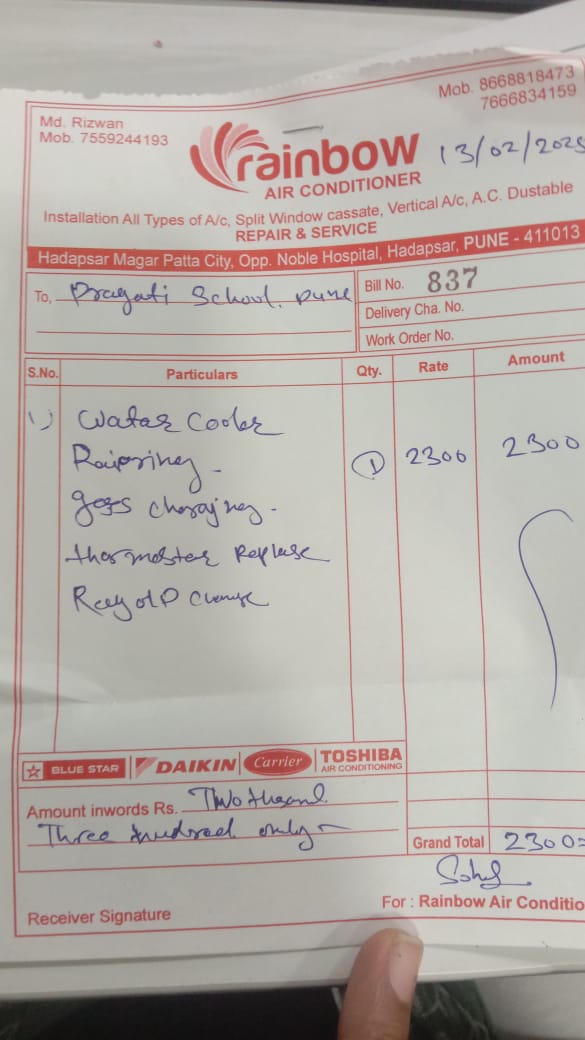 Mob. 8668818473
7666834159
Md. Rizwan
Mob. 7559244193
rainbow
AIR CONDITIONER
13/02/2025
Installation All Types of A/c, Split Window cassate, Vertical A/c, A.C. Dustable
REPAIR & SERVICE
Hadapsar Magar Patta City, Opp. Noble Hospital, Hadapsar, PUNE - 411013
To, Pragati School. Pune
Bill No. 837
Delivery Cha. No.
Work Order No.
S.No. Particulars Qty. Rate Amount
1) Water Cooler
Raipring - 1 2300 2300
gass charajing -
thormostar Replase
change
BLUE STAR DAIKIN Carrier TOSHIBA
AIR CONDITIONING
Amount inwords Rs. Two
Three hundred only
Grand Total 2300=
Receiver Signature
For : Rainbow Air Conditio